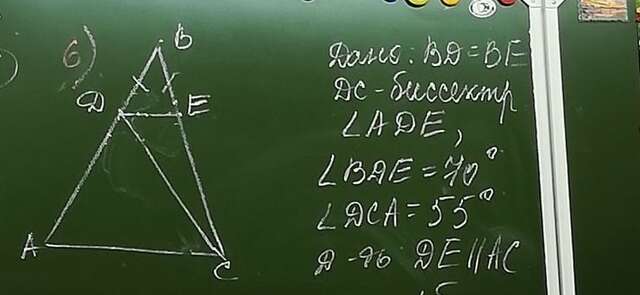 б)
B
D E
A C
Дано: BD = BE
DC - биссектр
∠ADE,
∠BDE = 70°
∠DCA = 55°
Д-ть DE || AC